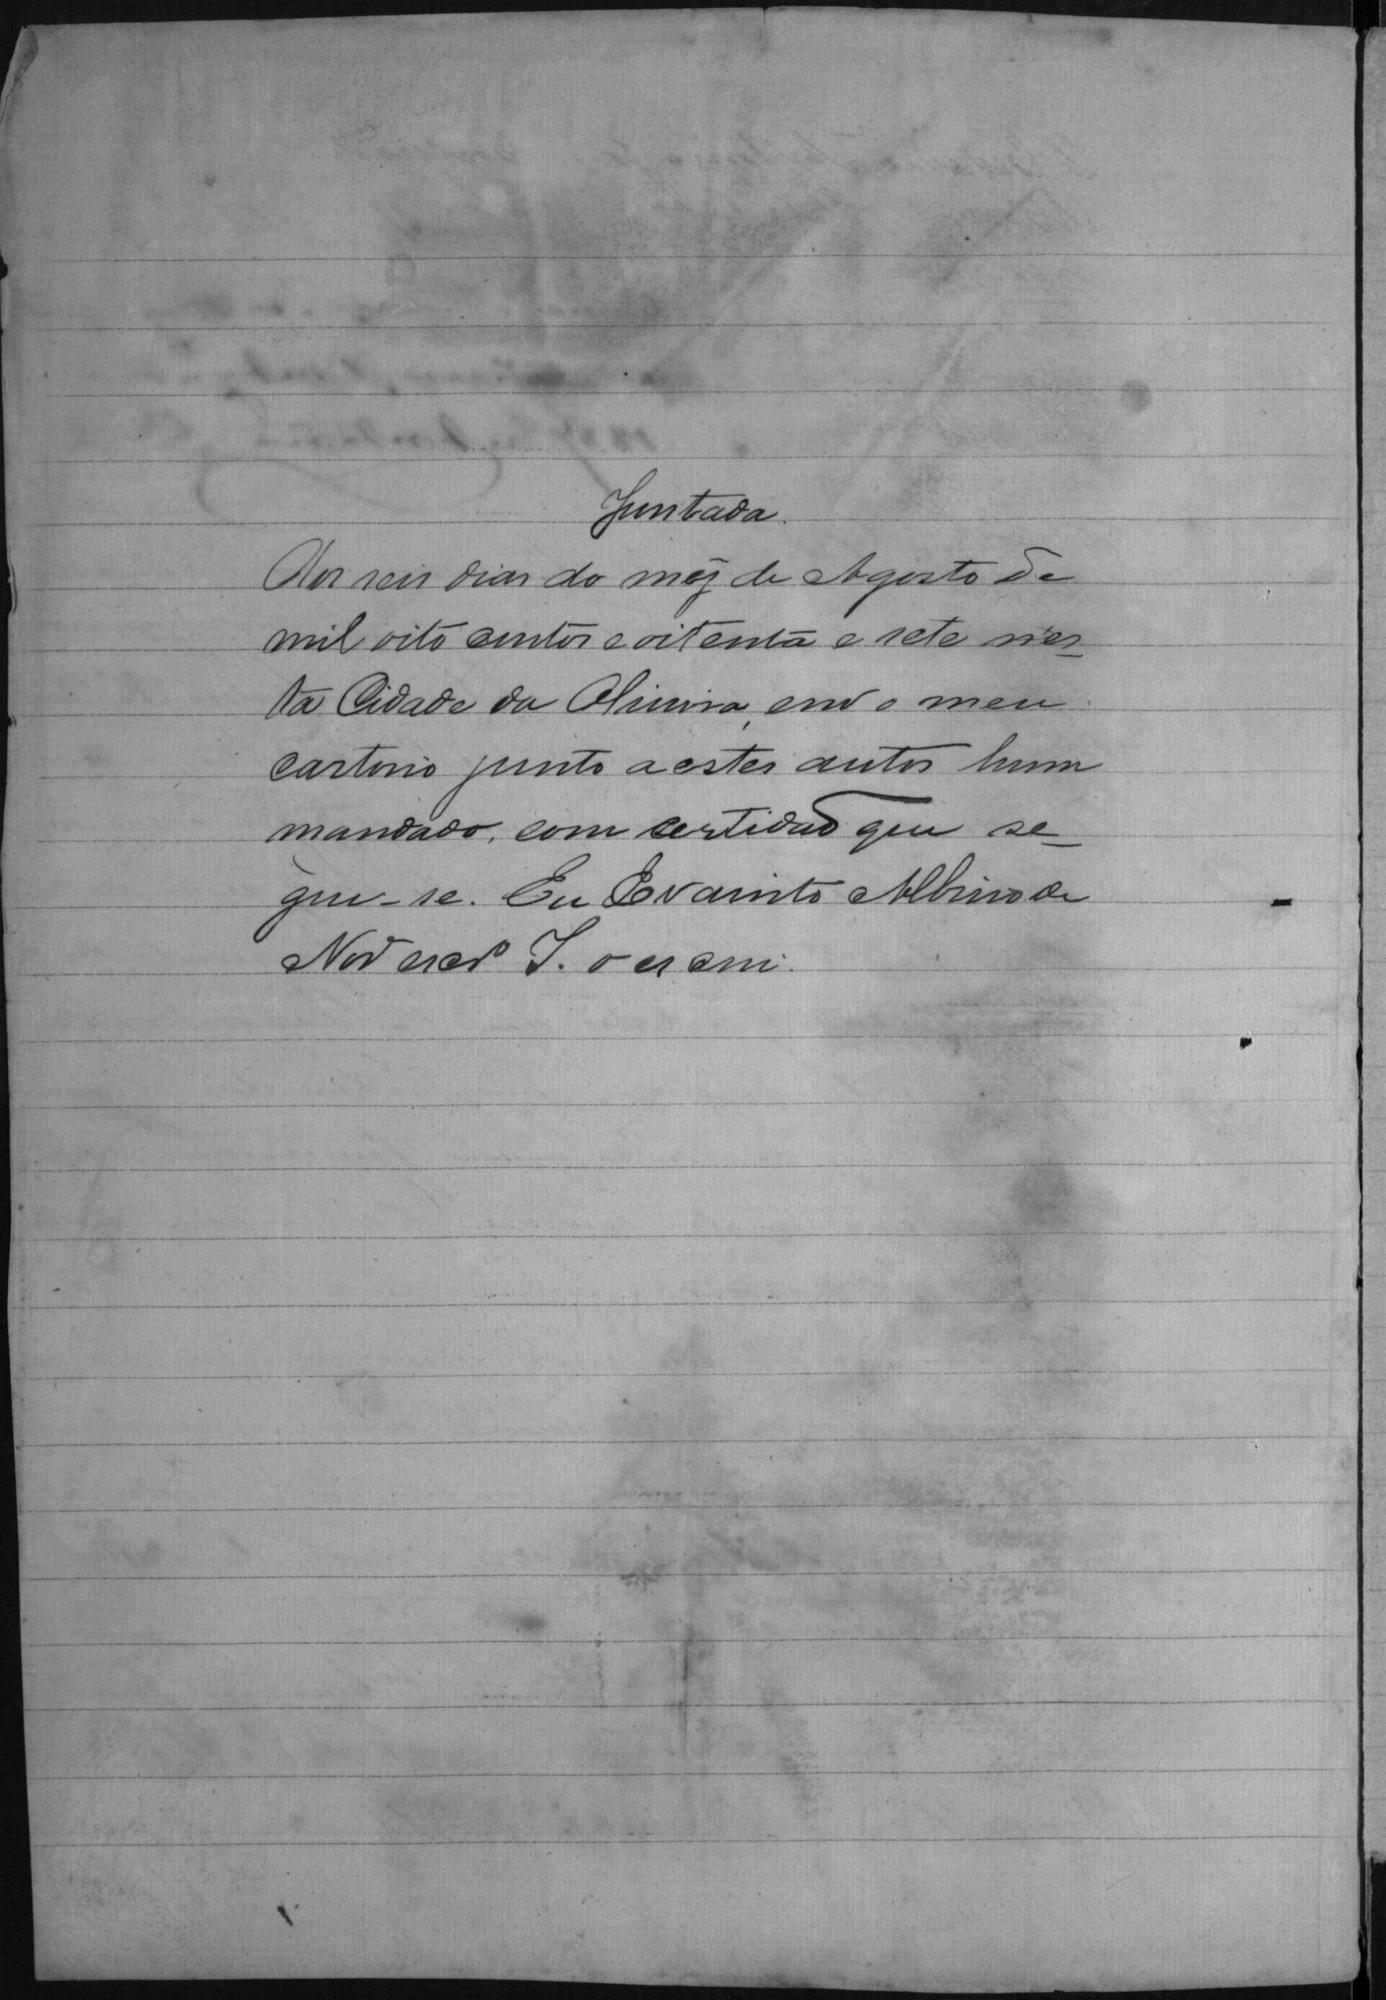 Juntada.
Aos seis dias do mez de Agosto de
mil oito centos e oitenta e sete n'es-
ta Cidade da Oliveira, em o meu
cartorio junto a estes autos hum
mandado, com certidaõ que se-
gue-se. Eu Evaristo Albino de
escr.º I. o escrevi.